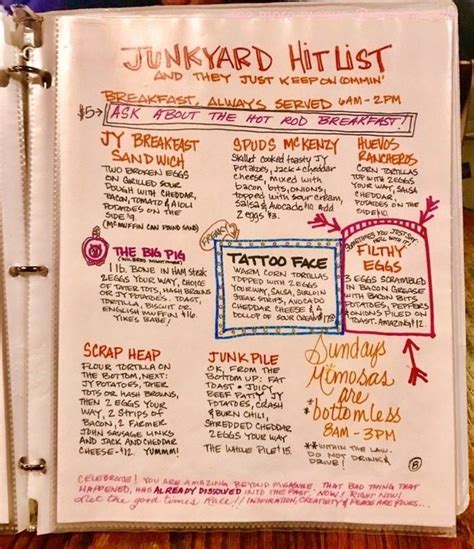 JUNKYARD HIT LIST
AND THEY JUST KEEP ON COMMIN'
BREAKFAST, ALWAYS SERVED 6AM-2PM
$5→ ASK ABOUT THE HOT ROD BREAKFAST!
JY BREAKFAST
SANDWICH
TWO BROKEN EGGS
ON GRILLED SOUR
DOUGH WITH CHEDDAR,
BACON, TOMATO & AIOLI
POTATOES ON THE
SIDE $9.
(MCMUFFIN CAN POUND SAND)
SPUDS MCKENZY
SKILLET COOKED TOASTY JY
POTATOES, JACK + CHEDDAR
CHEESE, MIXED WITH
BACON BITS, ONIONS,
TOPPED WITH SOUR CREAM,
SALSA & AVOCADO $10 ADD
2 EGGS $3.
HUEVOS
RANCHEROS
CORN TORTILLAS
TOP WITH 2 EGGS
YOUR WAY, SALSA
CHEDDAR, CHOICE
OF POTATOES
ON THE SIDE
$10.
THE BIG PIG
1 LB. BONE IN HAM STEAK
2 EGGS YOUR WAY, CHOICE
OF TATER TOTS, HASH BROWNS
OR JY POTATOES. TOAST,
TORTILLA, BISCUIT OR
ENGLISH MUFFIN $16.
YIKES BABE!
TATTOO FACE
WARM CORN TORTILLAS
TOPPED WITH 2 EGGS
YOUR WAY, SALSA, SIRLOIN
STEAK STRIPS, AVOCADO
CHEDDAR CHEESE & A
DOLLOP OF SOUR CREAM
SOMETIMES YOU JUST SAY
HELL WITH IT!
FILTHY
EGGS
3 EGGS SCRAMBLED
IN BACON GREASE
WITH BACON BITS
POTATOES, PEPPERS
& ONIONS PILED ON
TOAST. AMAZING $12
SCRAP HEAP
FLOUR TORTILLA ON
THE BOTTOM, NEXT:
JY POTATOES, TATER
TOTS OR HASH BROWNS,
THEN 2 EGGS YOUR
WAY, 2 STRIPS OF
BACON, 2 FARMER
JOHN SAUSAGE LINKS
AND JACK AND CHEDDAR
CHEESE-$12. YUMMM!
JUNK PILE
OK, FROM THE
BOTTOM UP: FAT
TOAST + JUICY
BEEF PATTY, JY
POTATOES, CRASH
& BURN CHILI,
SHREDDED CHEDDAR
2 EGGS YOUR WAY
THE WHOLE PILE $15.
Sundays
Mimosas
are
bottomless
8AM - 3PM
**WITHIN THE LAW.
DO NOT DRINK &
DRIVE!
8
CELEBRATE! YOU ARE AMAZING BEYOND MEASURE. THAT BAD THING THAT
HAPPENED, HAS ALREADY DISSOLVED INTO THE PAST, NOW! RIGHT NOW!
Let the good times Roll!! INSPIRATION, CREATIVITY & PEACE ARE YOURS...